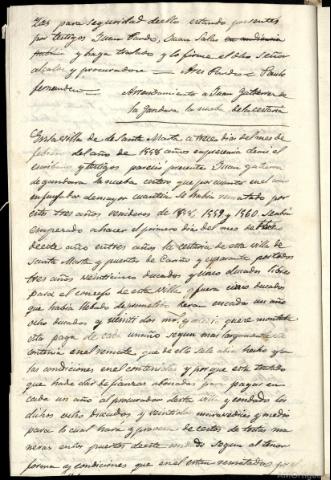 Las para seguridad dello estando presentes
por testigos Juan Pardo, Juan Salas
y haga traslado y lo firme el dho Señor
alcalde y procuradores — Ares Pardo — Paulo
fernandez — Arrendamiento a Juan Gutierrez de
la Gandara la suela de la cestería
En la villa de Santa Marta a trece dias del mes de
febrero del año de 1558 años en presencia de mi el
escribano y testigos pareció presente Juan gutierrez
de gandara la suela
por ser de mayor cuantía se había rematado por
estos tres años venideros de 1558, 1559 y 1560 se había
empezado a hacer el primero día del mes de
deste año en tres años la cestería de esta villa de
Santa Marta y puertos de Cariño y espasante por todos
tres años veinticinco ducados y cinco ducados libres
para el concejo de esta villa y fuera cinco ducados
que había llebado de prometido heran en cada un año
ocho ducados y veintidos mrs y medio, que se montaba
esta paga de cada un año segun mas largamente
contenia en el remate, que de ello sale abia hecho y con
las condiciones en el contenidas y porque esta tratado
que hade dar de fianzas abonadas para pagar en
cada un año al procurador desta villa y contado los
dichos ocho ducados y veintidos maravedises y medio
para lo cual hará y proveera de cestos de todas ma
neras en los puertos deste segun al tenor
forma y condiciones que en el estan rematados por